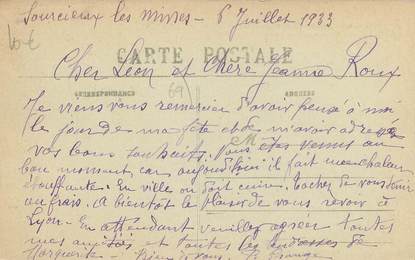 Sourcieux les Mines - 6 Juillet 1933
10 €
CARTE POSTALE
Cher Léon et Chère Jeanne Roux
CORRESPONDANCE
69
ADRESSE
Je viens vous remercier d'avoir pensé à moi
le jour de ma fête et de m'avoir adressé
vos bons souhaits. Vous êtes venus au
bon moment, car aujourd'hui il fait une chaleur
étouffante. En ville on doit cuire. Tachez de vous tenir
au frais. A bientôt le plaisir de vous revoir à
Lyon - En attendant veuillez agréer toutes
mes amitiés et toutes les tendresses de
Marguerite - Bien à vous